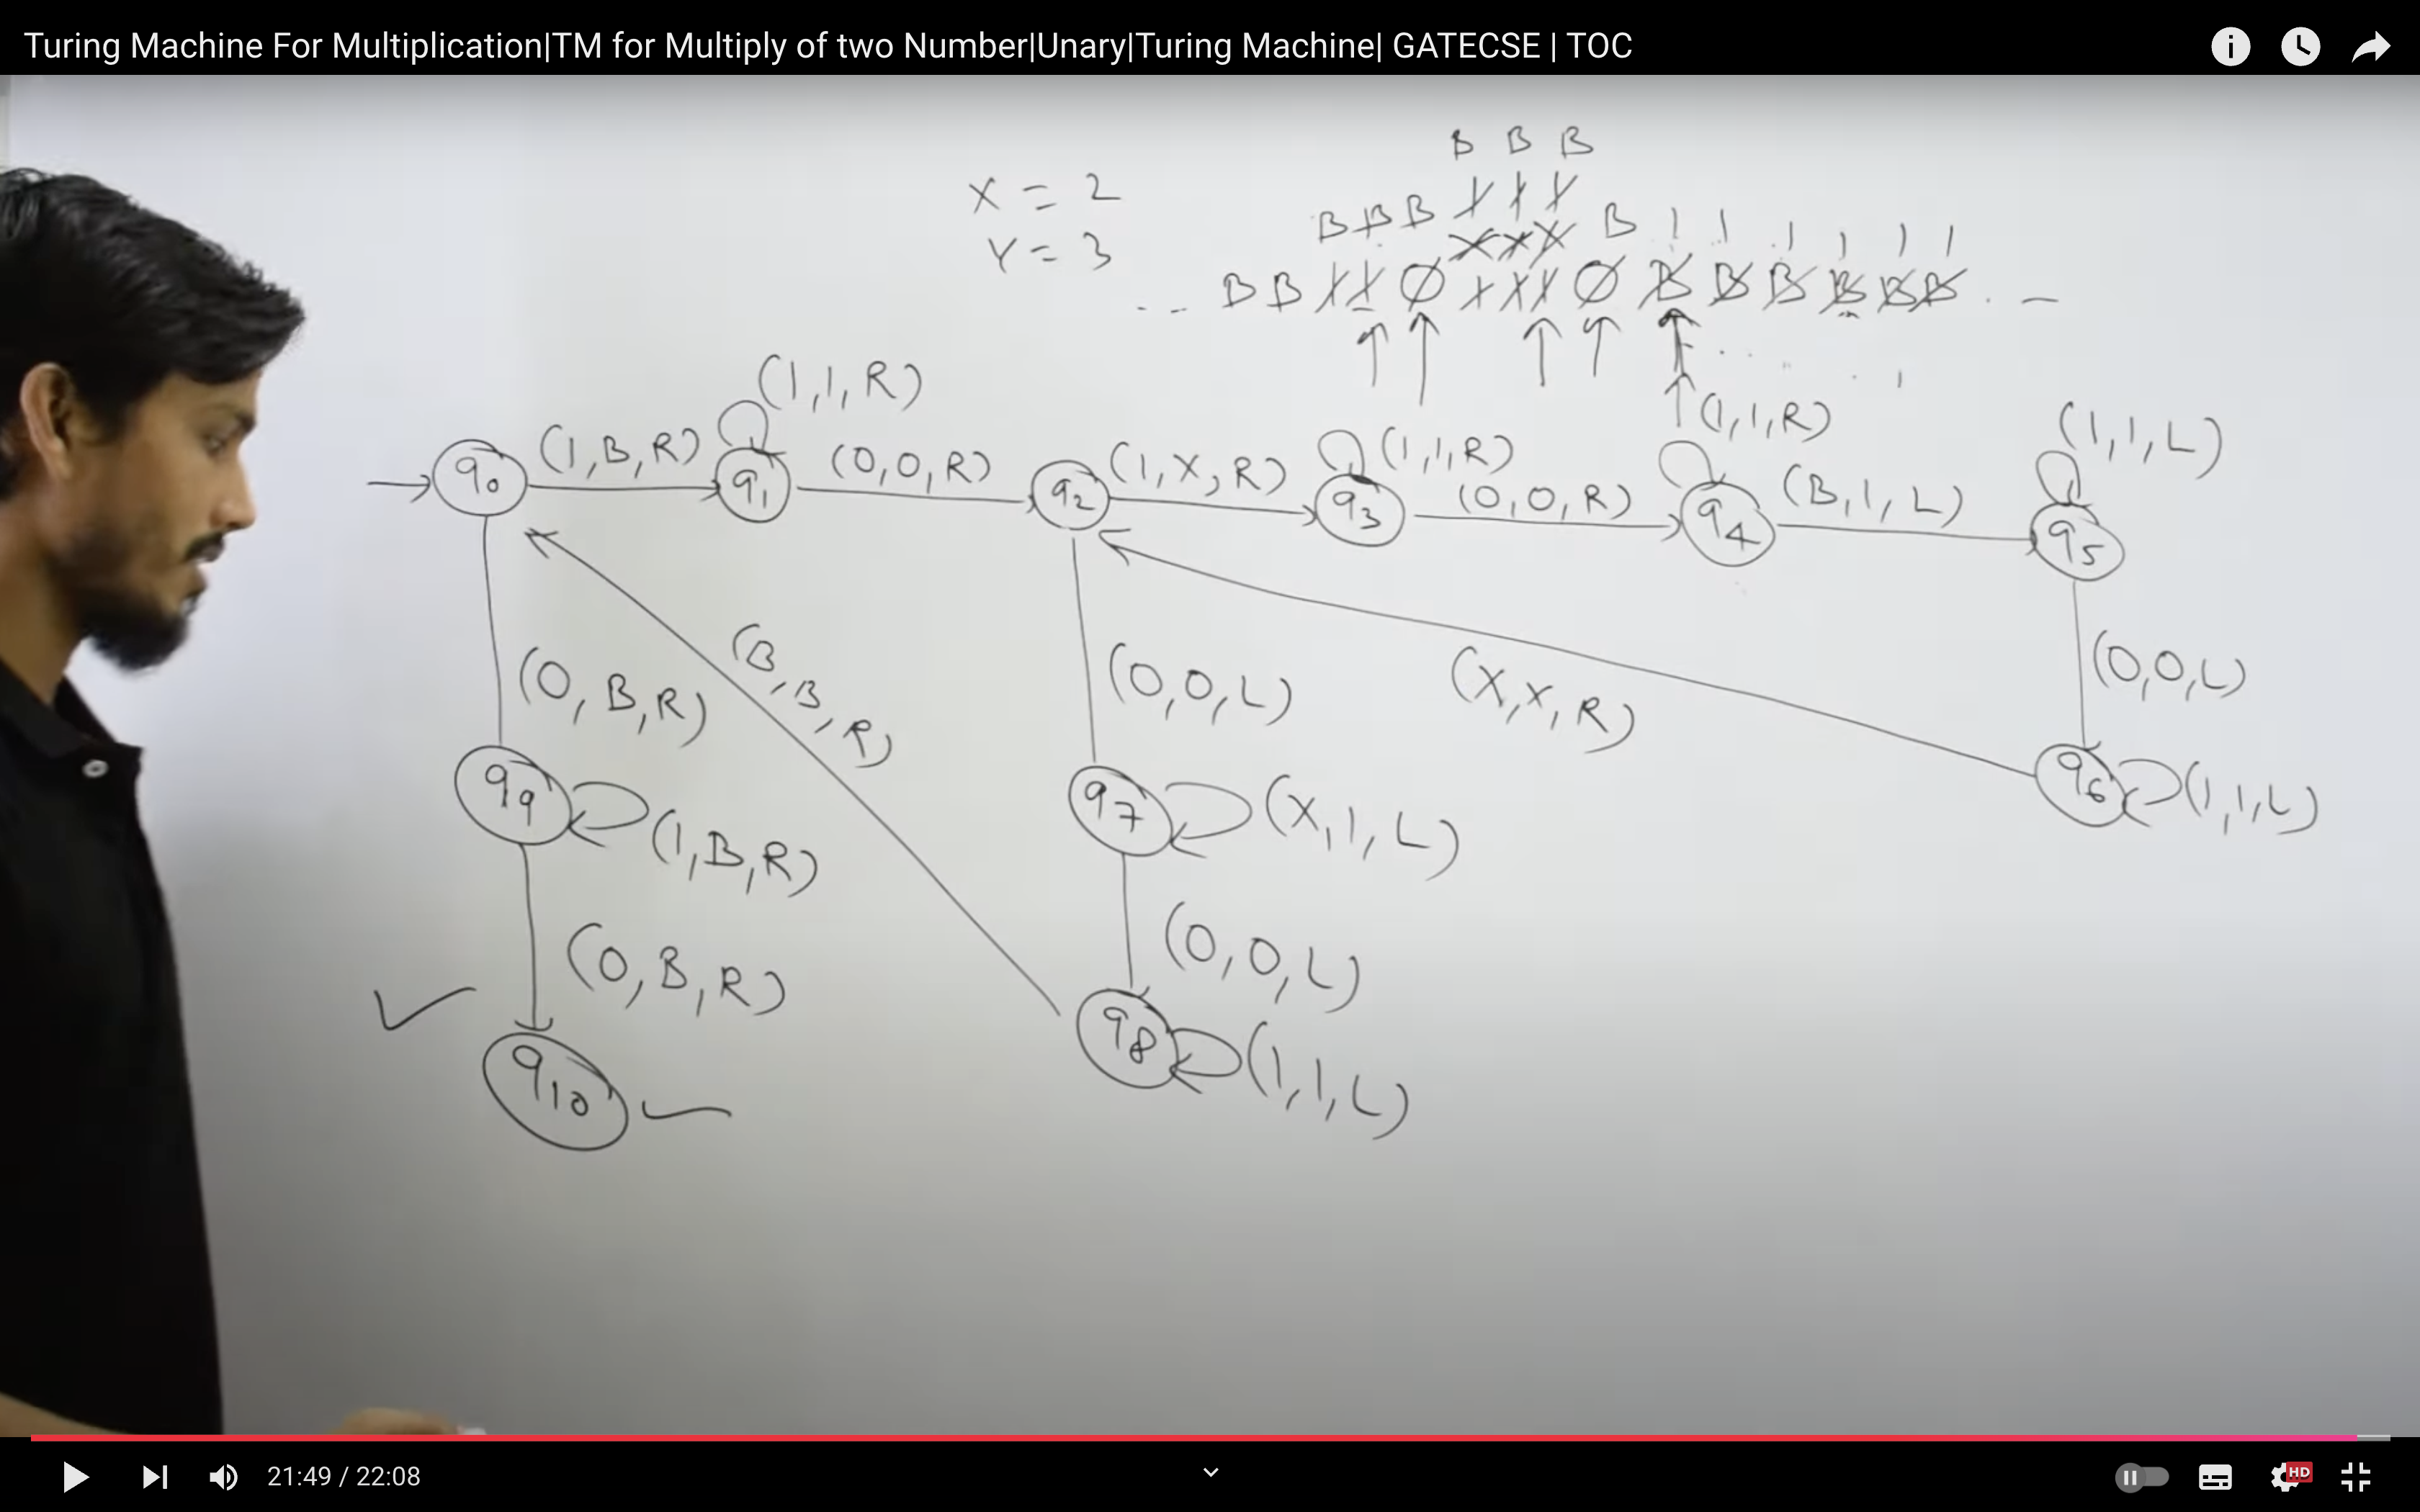 Turing Machine For Multiplication|TM for Multiply of two Number|Unary|Turing Machine| GATECSE | TOC
B B B
X = 2
Y = 3
B B B X X X B 1 1 1 1 1 1
X X X
B B 0 0 B B B B B B
(1,1,R)
(1,1,R)
(1,1,R)
(1,1,L)
q0 (1,B,R) q1 (0,0,R) q2 (1,X,R) q3 (0,0,R) q4 (B,1,L) q5
(0,B,R)
(B,B,R)
(0,0,L)
(X,X,R)
(0,0,L)
q9 (1,B,R)
q7 (X,1,L)
q6 (1,1,L)
(0,B,R)
(0,0,L)
q10
q8 (1,1,L)
21:49 / 22:08
HD